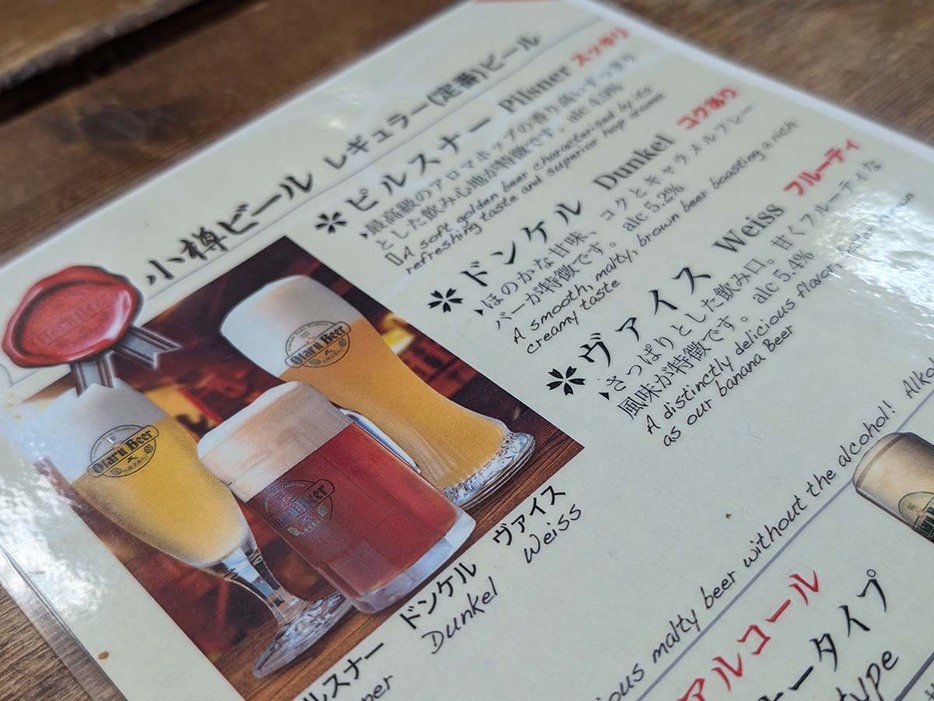 小樽ビール レギュラー(定番)ビール
ピルスナー Pilsner スッキリ
最高級のアロマホップの香り高いすっきり
とした飲み心地が特徴です。alc 4.9%
A soft golden beer characterised by its
refreshing taste and superior hop aroma
ドンケル Dunkel コクあり
ほのかな甘味、コクとキャラメルフレー
バーが特徴です。alc 5.2%
A smooth, malty, brown beer boasting a rich
creamy taste
ヴァイス Weiss フルーティ
さっぱりとした飲み口。甘くフルーティな
風味が特徴です。alc 5.4%
A distinctly delicious flavor
as our banana Beer
Otaru Beer
Otaru Beer
Beer
ルスナー ドンケル ヴァイス
Dunkel Weiss
malty beer without the alcohol!
アルコール
タイプ
type